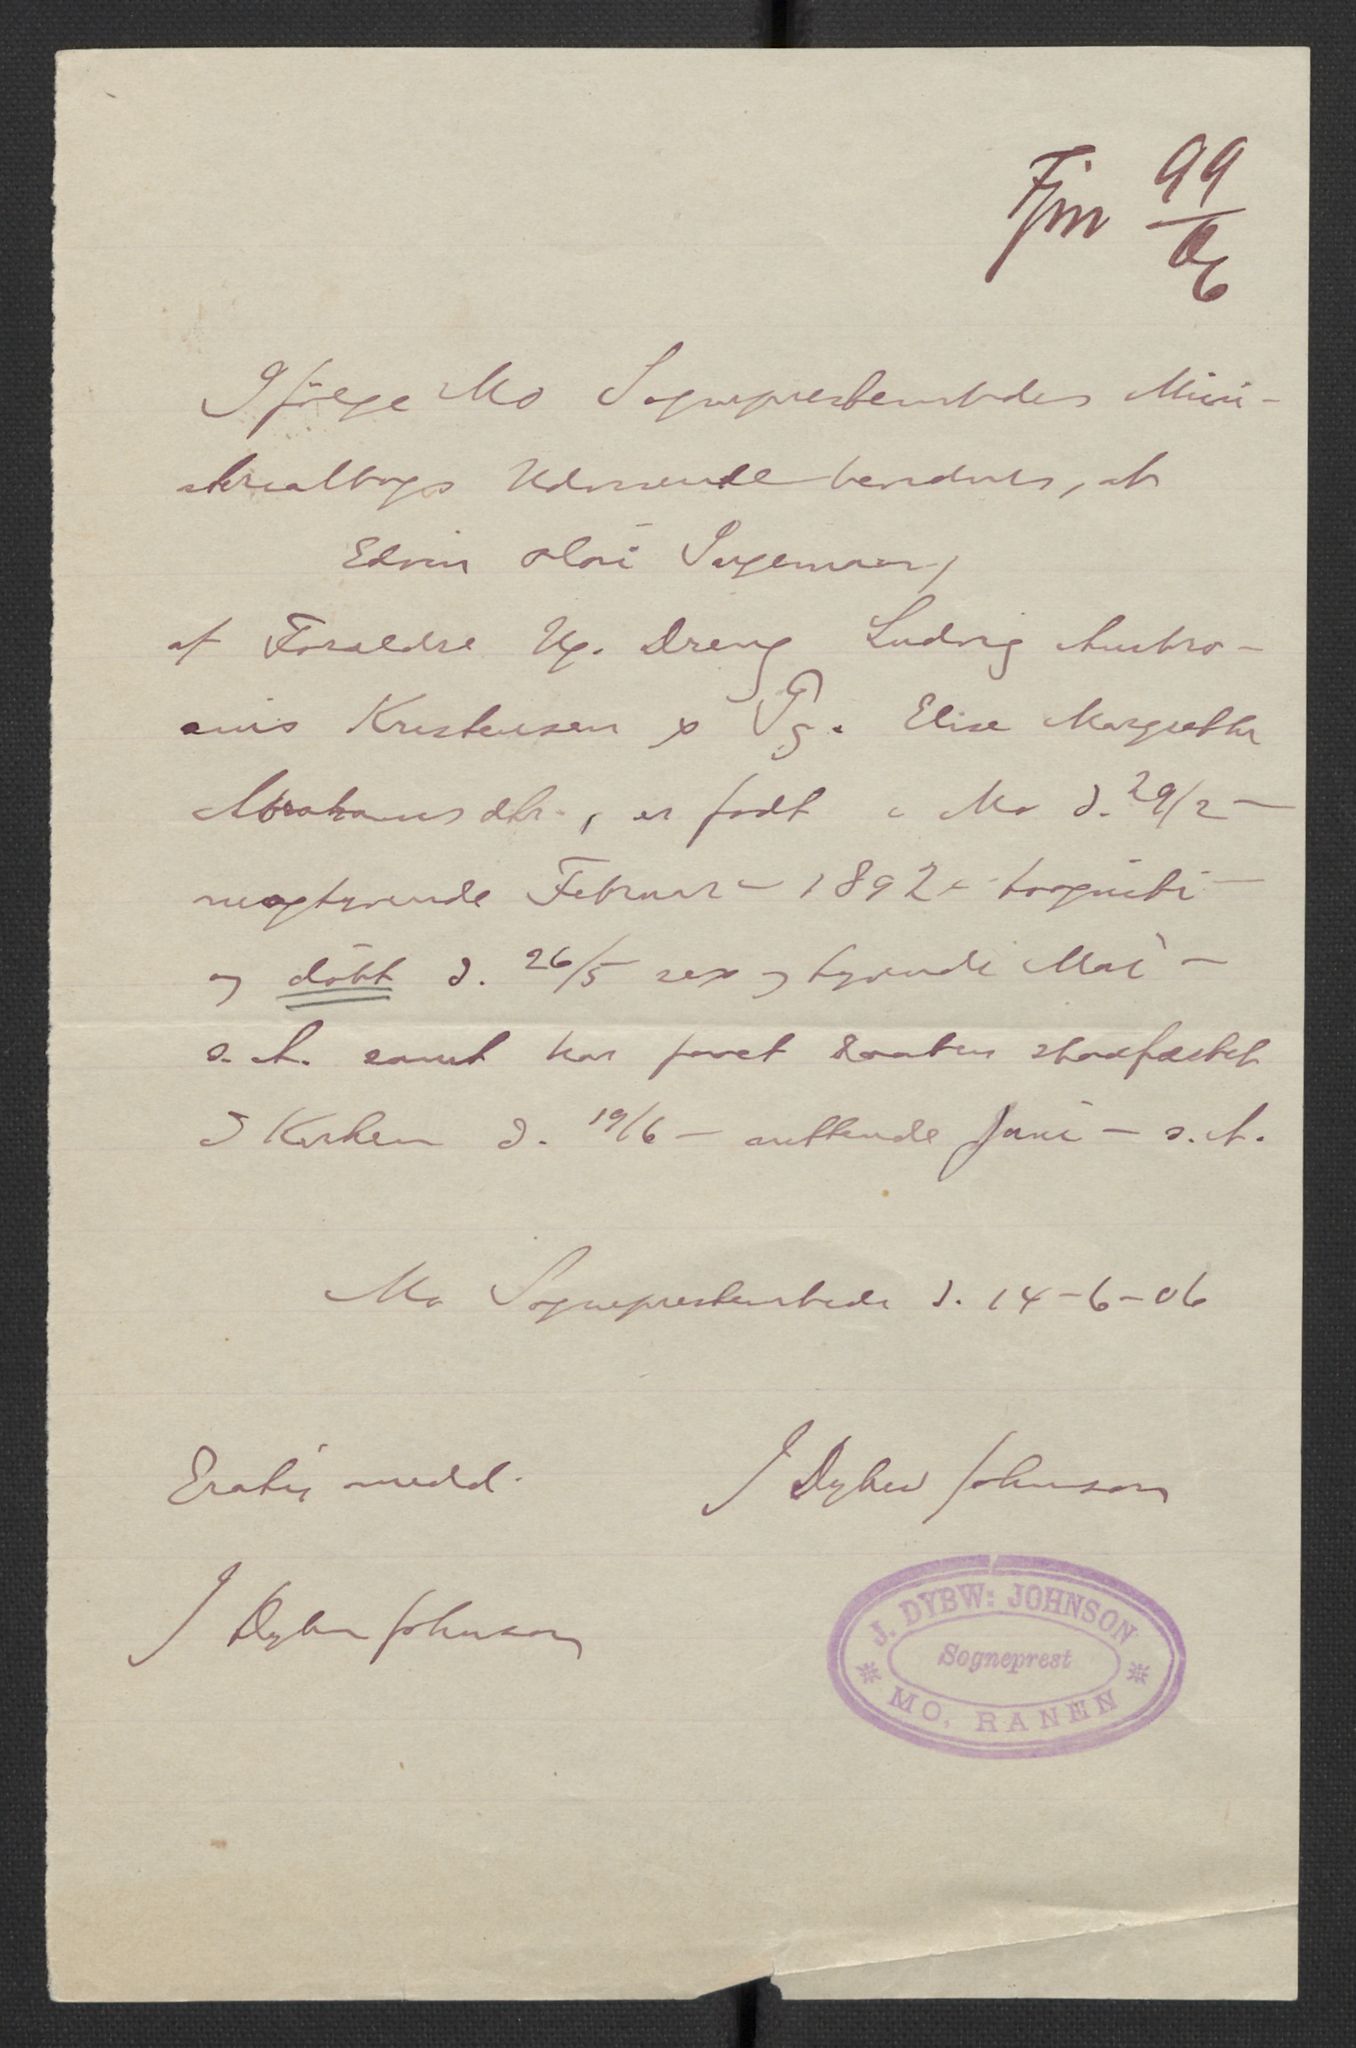 Fjm 99
06
Ifølge Mo Sogneprestembedes Mini-
sterialbogs Udvisende bevidnes, at
Edvin Olai Ingemann,
af Foræld­re Ug. Dreng Ludvig Austro-
nius Kristensen & Pg. Elise Margrethe
Abrahamsdtr., er født i Mo d. 29/2 -
niogtyvende Februar - 1892 - toognitti -
og döbt d. 26/5 sex og tyvende Mai -
s. A. samt har faaet Daaben stadfæstet
I Kirken d. 19/6 - nittende Juni - s. A.
Mo Sogneprestembede d. 14-6-06
Gratis medd. J Dybw Johnson
J Dybw Johnson
J. DYBW: JOHNSON
Sogneprest
MO, RANEN